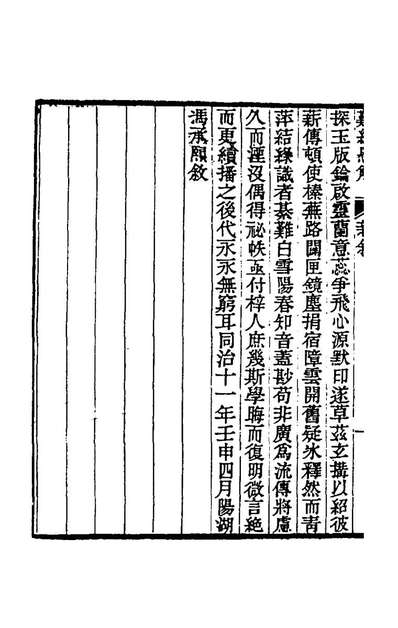 探玉版鑰啟靈蘭意蕊爭飛心源默印遂草茲玄搆以紹彼
薪傳頓使榛蕪路闢匣鏡塵捐宿障雲開舊疑冰釋然而青
萍結綠識者綦難白雪陽春知音蓋尠苟非廣為流傳將慮
久而湮沒偶得祕帙亟付梓人庶幾斯學晦而復明微言絕
而更續播之後代永永無窮耳同治十一年壬申四月陽湖
馮承熙敘